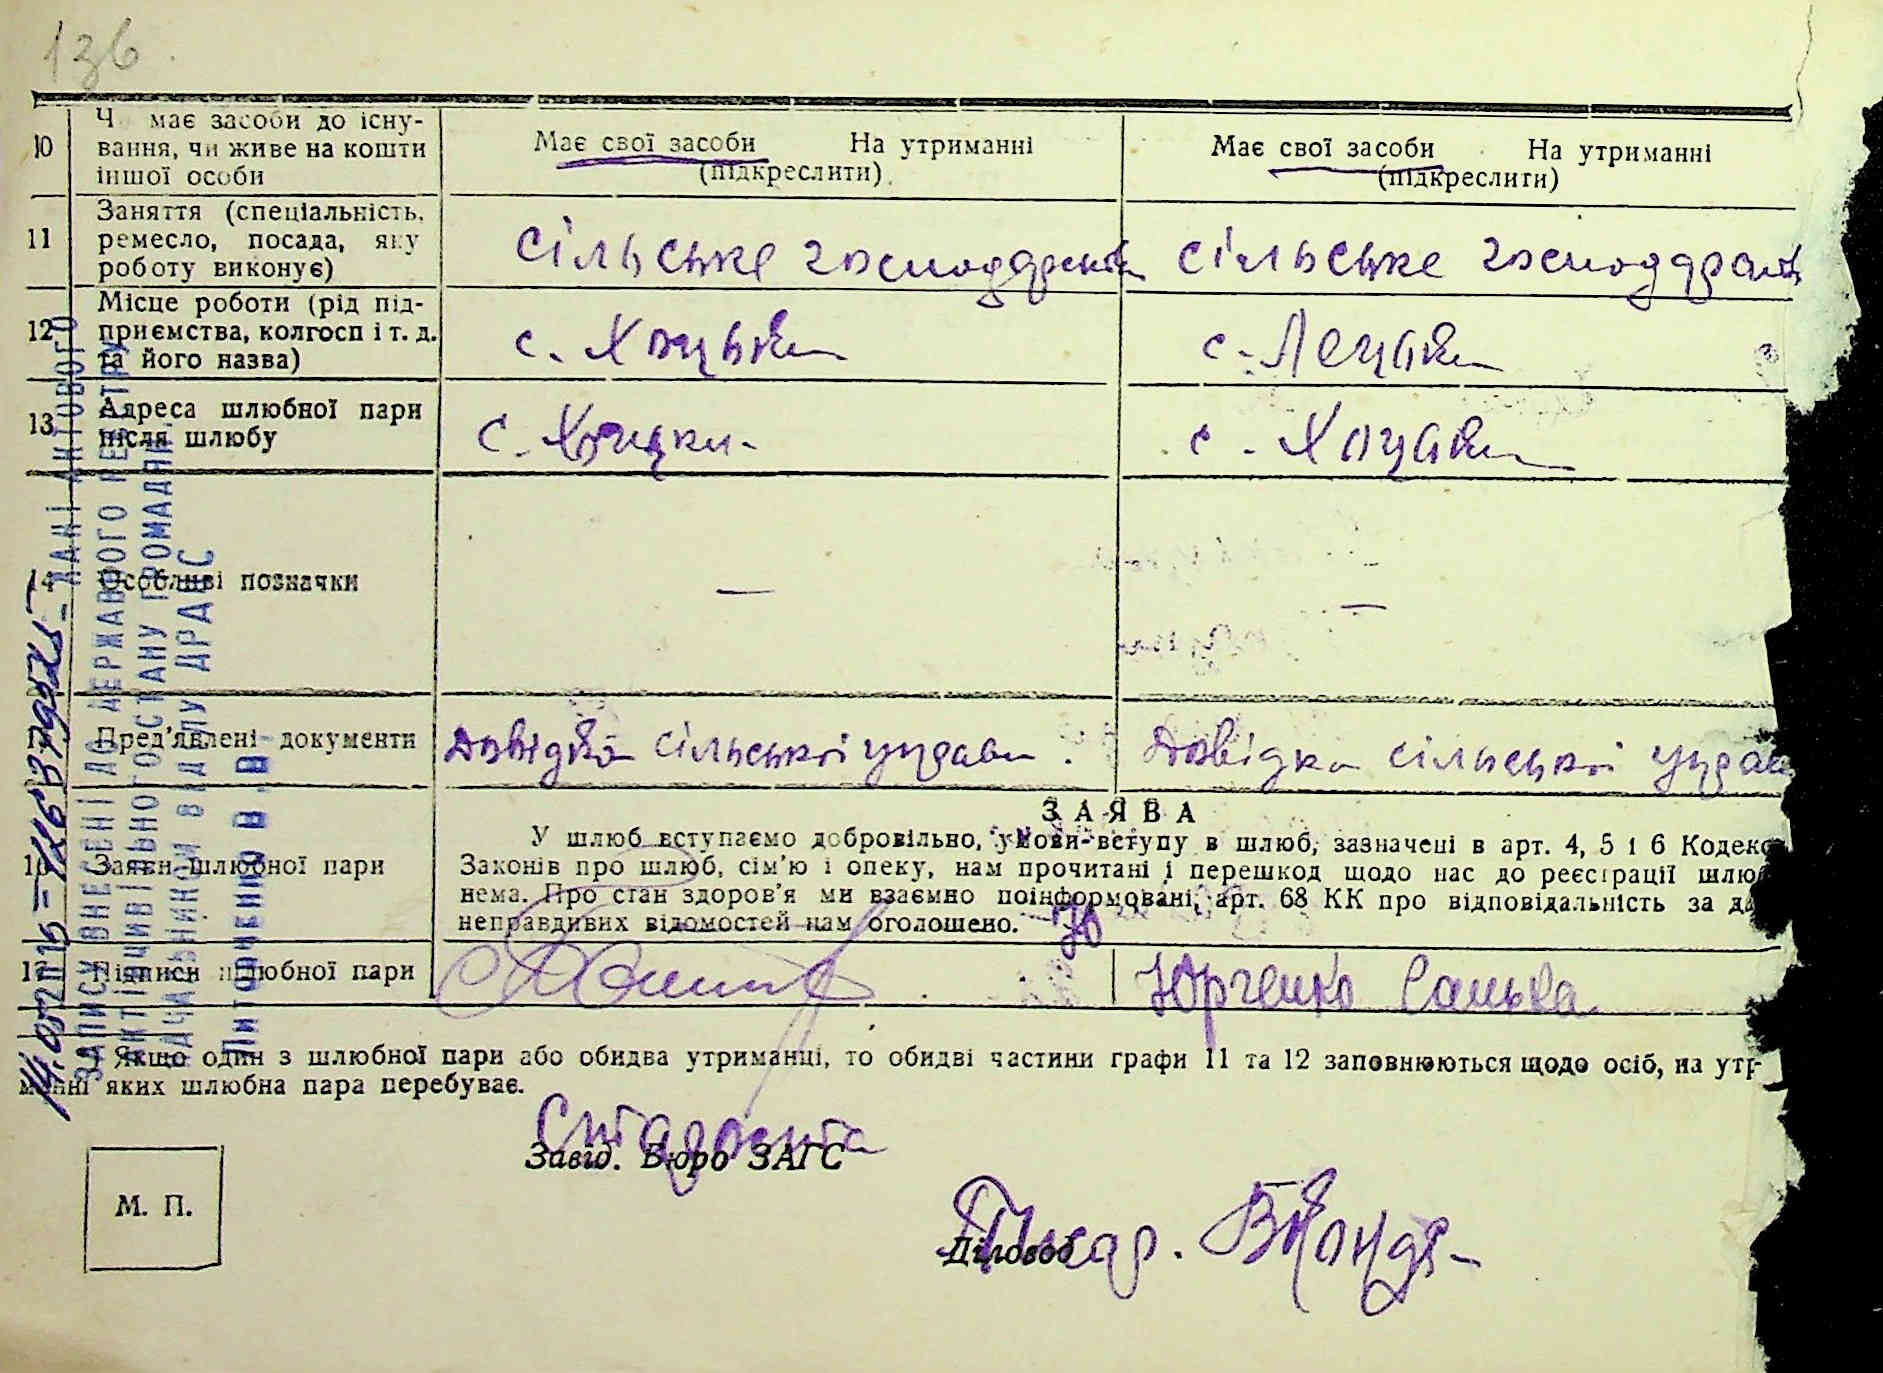 136.
10
Ч має засоби до існу-
вання, чи живе на кошти
іншої особи
Має свої засоби На утриманні
(підкреслити).
Має свої засоби На утриманні
(підкреслити)
11
Заняття (спеціальність,
ремесло, посада, яку
роботу виконує)
сільське господарств
сільське господарств
12
Місце роботи (рід під-
приємства, колгосп і т. д.
та його назва)
с. Хоцьки
с. Лецьки
13
Адреса шлюбної пари
після шлюбу
с. Хоцки.
с. Хоцьки
14
Особливі позначки
—
—
Пред'явлені документи
Довідка сільської управи.
Довідка сільської управ
16
Заяви шлюбної пари
ЗАЯВА
У шлюб вступаємо добровільно, умови вступу в шлюб, зазначені в арт. 4, 5 і 6 Кодекс
Законів про шлюб, сім'ю і опеку, нам прочитані і перешкод щодо нас до реєстрації шлю
нема. Про стан здоров'я ми взаємно поінформовані, арт. 68 КК про відповідальність за д
неправдивих відомостей нам оголошено.
17
Підписи шлюбної пари
Юрченко Санька
Якщо один з шлюбної пари або обидва утриманці, то обидві частини графи 11 та 12 заповнюються щодо осіб, на утр-
манні яких шлюбна пара перебуває.
Староста
Завід. Бюро ЗАГС
М. П.
Писар.
Діловод
ДАНІ АКТОВОГО
ЗАПИСУ ВНЕСЕНІ ДО ДЕРЖАВНОГО РЕЄСТРУ
АКТІВ ЦИВІЛЬНОГО СТАНУ ГРОМАДЯН
НАЧАЛЬНИКОМ ВІДДІЛУ ДРАЦС